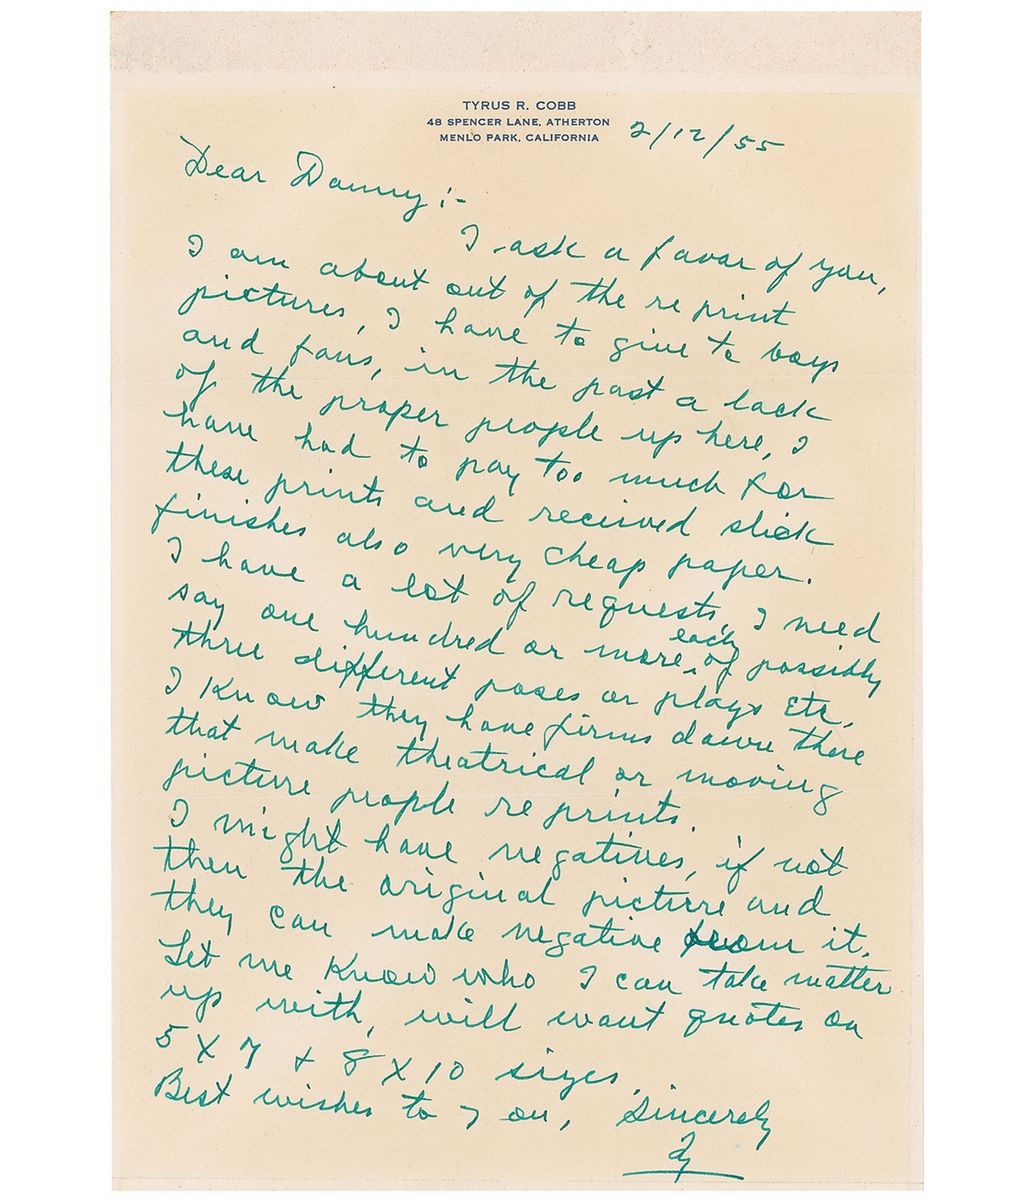 TYRUS R. COBB
48 SPENCER LANE, ATHERTON
MENLO PARK, CALIFORNIA
2/12/55
Dear Danny :-
I ask a favor of you,
I am about out of the re print
pictures, I have to give to boys
and fans, in the past a lack
of the proper people up here, I
have had to pay too much for
these prints and received slick
finishes also very cheap paper.
I have a lot of requests, I need
say one hundred or more, each of possibly
three different poses or plays etc.
I know they have firms down there
that make theatrical or moving
picture people re prints.
I might have negatives, if not
then the original picture and
they can make negative from it.
Let me know who I can take matter
up with, will want quotes on
5 x 7 + 8 x 10 sizes.
Best wishes to you, Sincerely
Ty